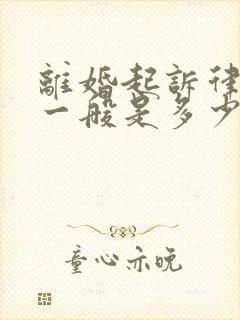 離婚起訴律
一般是多少
童心亦晚